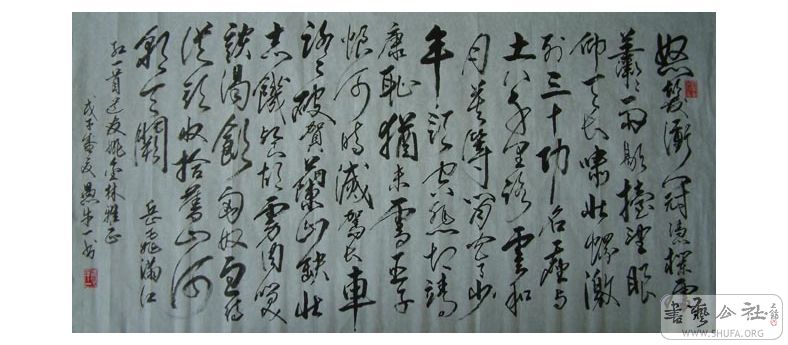 怒髮衝冠憑欄處
蕭々雨歇擡望眼
仰天長嘯壯懷激
烈三十功名塵與
土八千里路雲和
月莫等閑白了少
年頭空悲切靖
康恥猶未雪臣子
恨何時滅駕長車
踏破賀蘭山缺壯
志饑餐胡虜肉笑
談渴飲匈奴血待
從頭收拾舊山河
朝天闕 岳飛滿江
紅一首 友姚金林雅正
戊子 夏愚牛一书
書藝公社
WWW.SHUFA.ORG